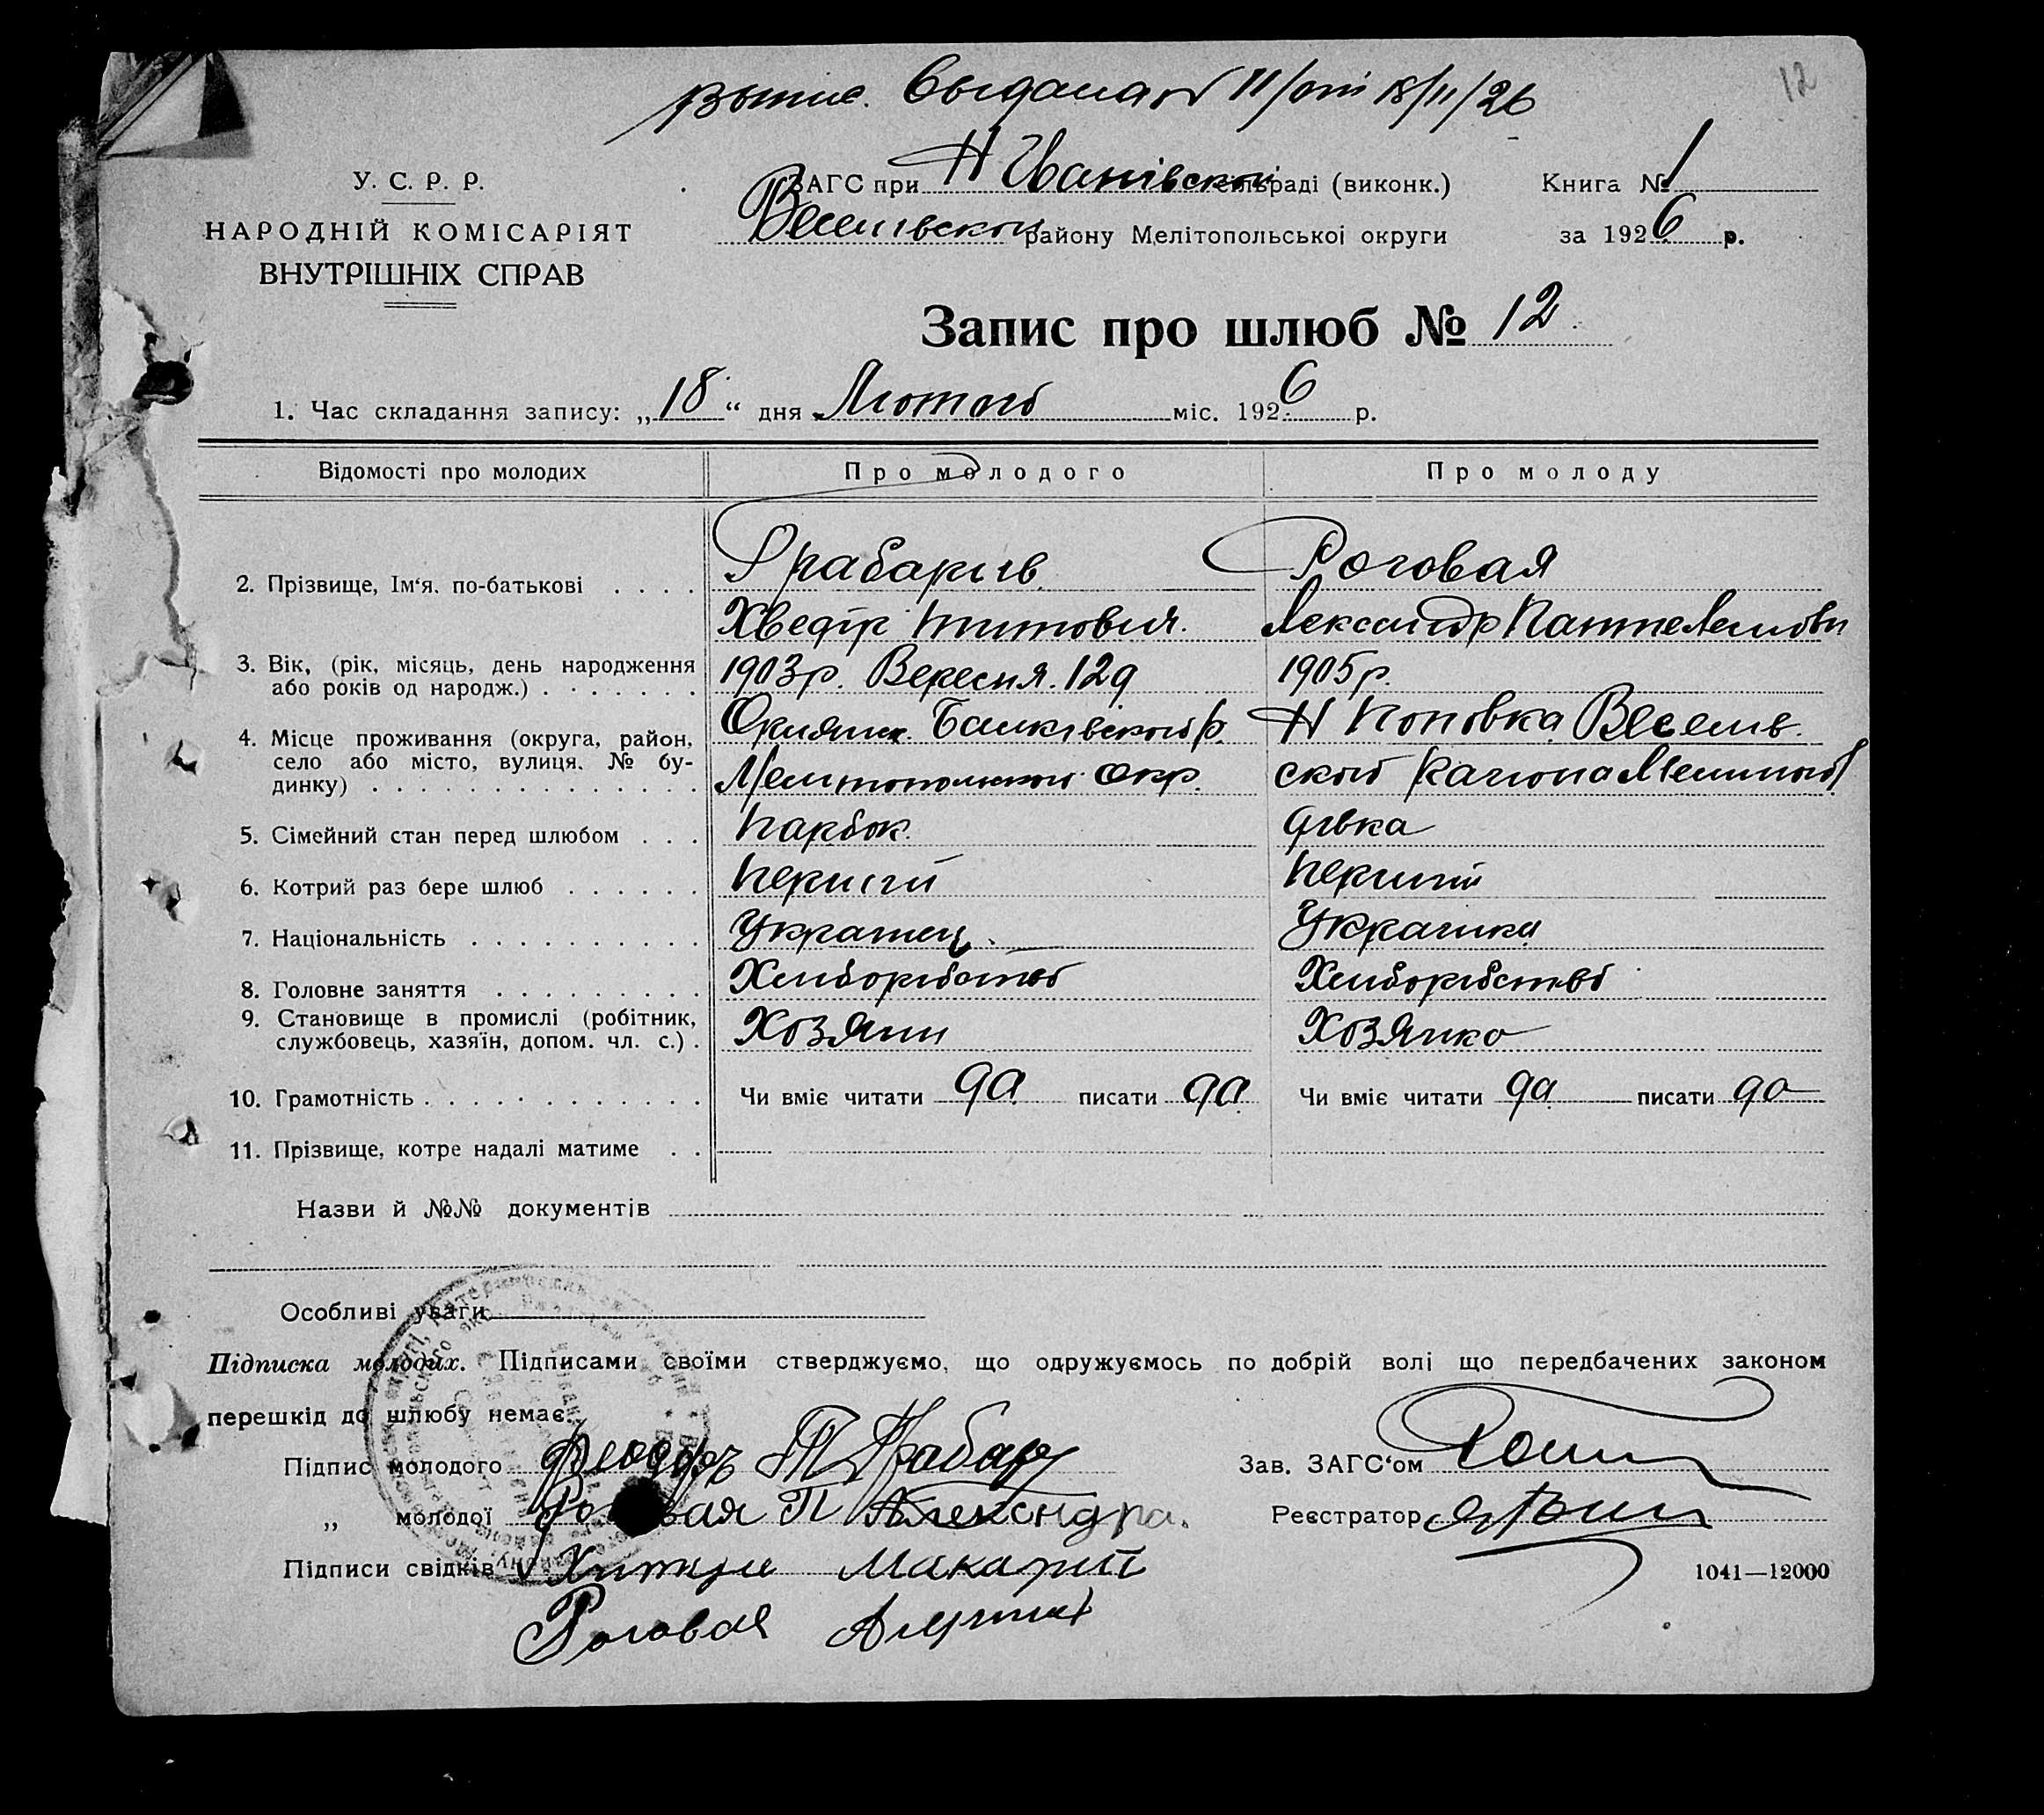 Выпис. выдана № 11/от 18/II/26
12
У. С. Р. Р.
НАРОДНІЙ КОМІСАРІЯТ
ВНУТРІШНІХ СПРАВ
ЗАГС при Н Іванівской сельраді (виконк.)
Веселівской району Мелітопольської округи
Книга № 1
за 1926 р.
Запис про шлюб № 12
1. Час складання запису: „18“ дня Лютого міс. 1926 р.
Відомості про молодих Про молодого Про молоду
2. Прізвище, Ім‘я, по-батькові . . . . Грабарив Роговая
Хведір Титович. Лександр Пантелемовн
3. Вік, (рік, місяць, день народження 1903 р. Вересня. 12 д 1905 р.
або років од народж.) . . . . . . .
4. Місце проживання (округа, район, Балківского р. Н Поповка Веселів.
село або місто, вулиця, № бу- Мелитопольской Окр. ской района Мелитоп
динку) . . . . . . . . . . . . . .
5. Сімейний стан перед шлюбом . . . Парбок. дівка
6. Котрий раз бере шлюб . . . . . . Перший Перший
7. Національність . . . . . . . . . . Украінец. Украинка
8. Головне заняття . . . . . . . . . Хлиборибство Хлиборибство
9. Становище в промислі (робітник, Хозяин Хозяйка
службовець, хазяїн, допом. чл. с.) .
10. Грамотність . . . . . . . . . . . . Чи вміє читати да писати да Чи вміє читати да писати да
11. Прізвище, котре надалі матиме . .
Назви й №№ документів
Особливі уваги
Підписка молодих. Підписами своїми стверджуємо, що одружуємось по добрій волі що передбачених законом
перешкід до шлюбу немає.
Підпис молодого Феодоръ Т Грабарь
Зав. ЗАГС‘ом
„ молодої Роговая П Александра.
Реєстратор
Підписи свідків Макарий
1041—12000
Роговая